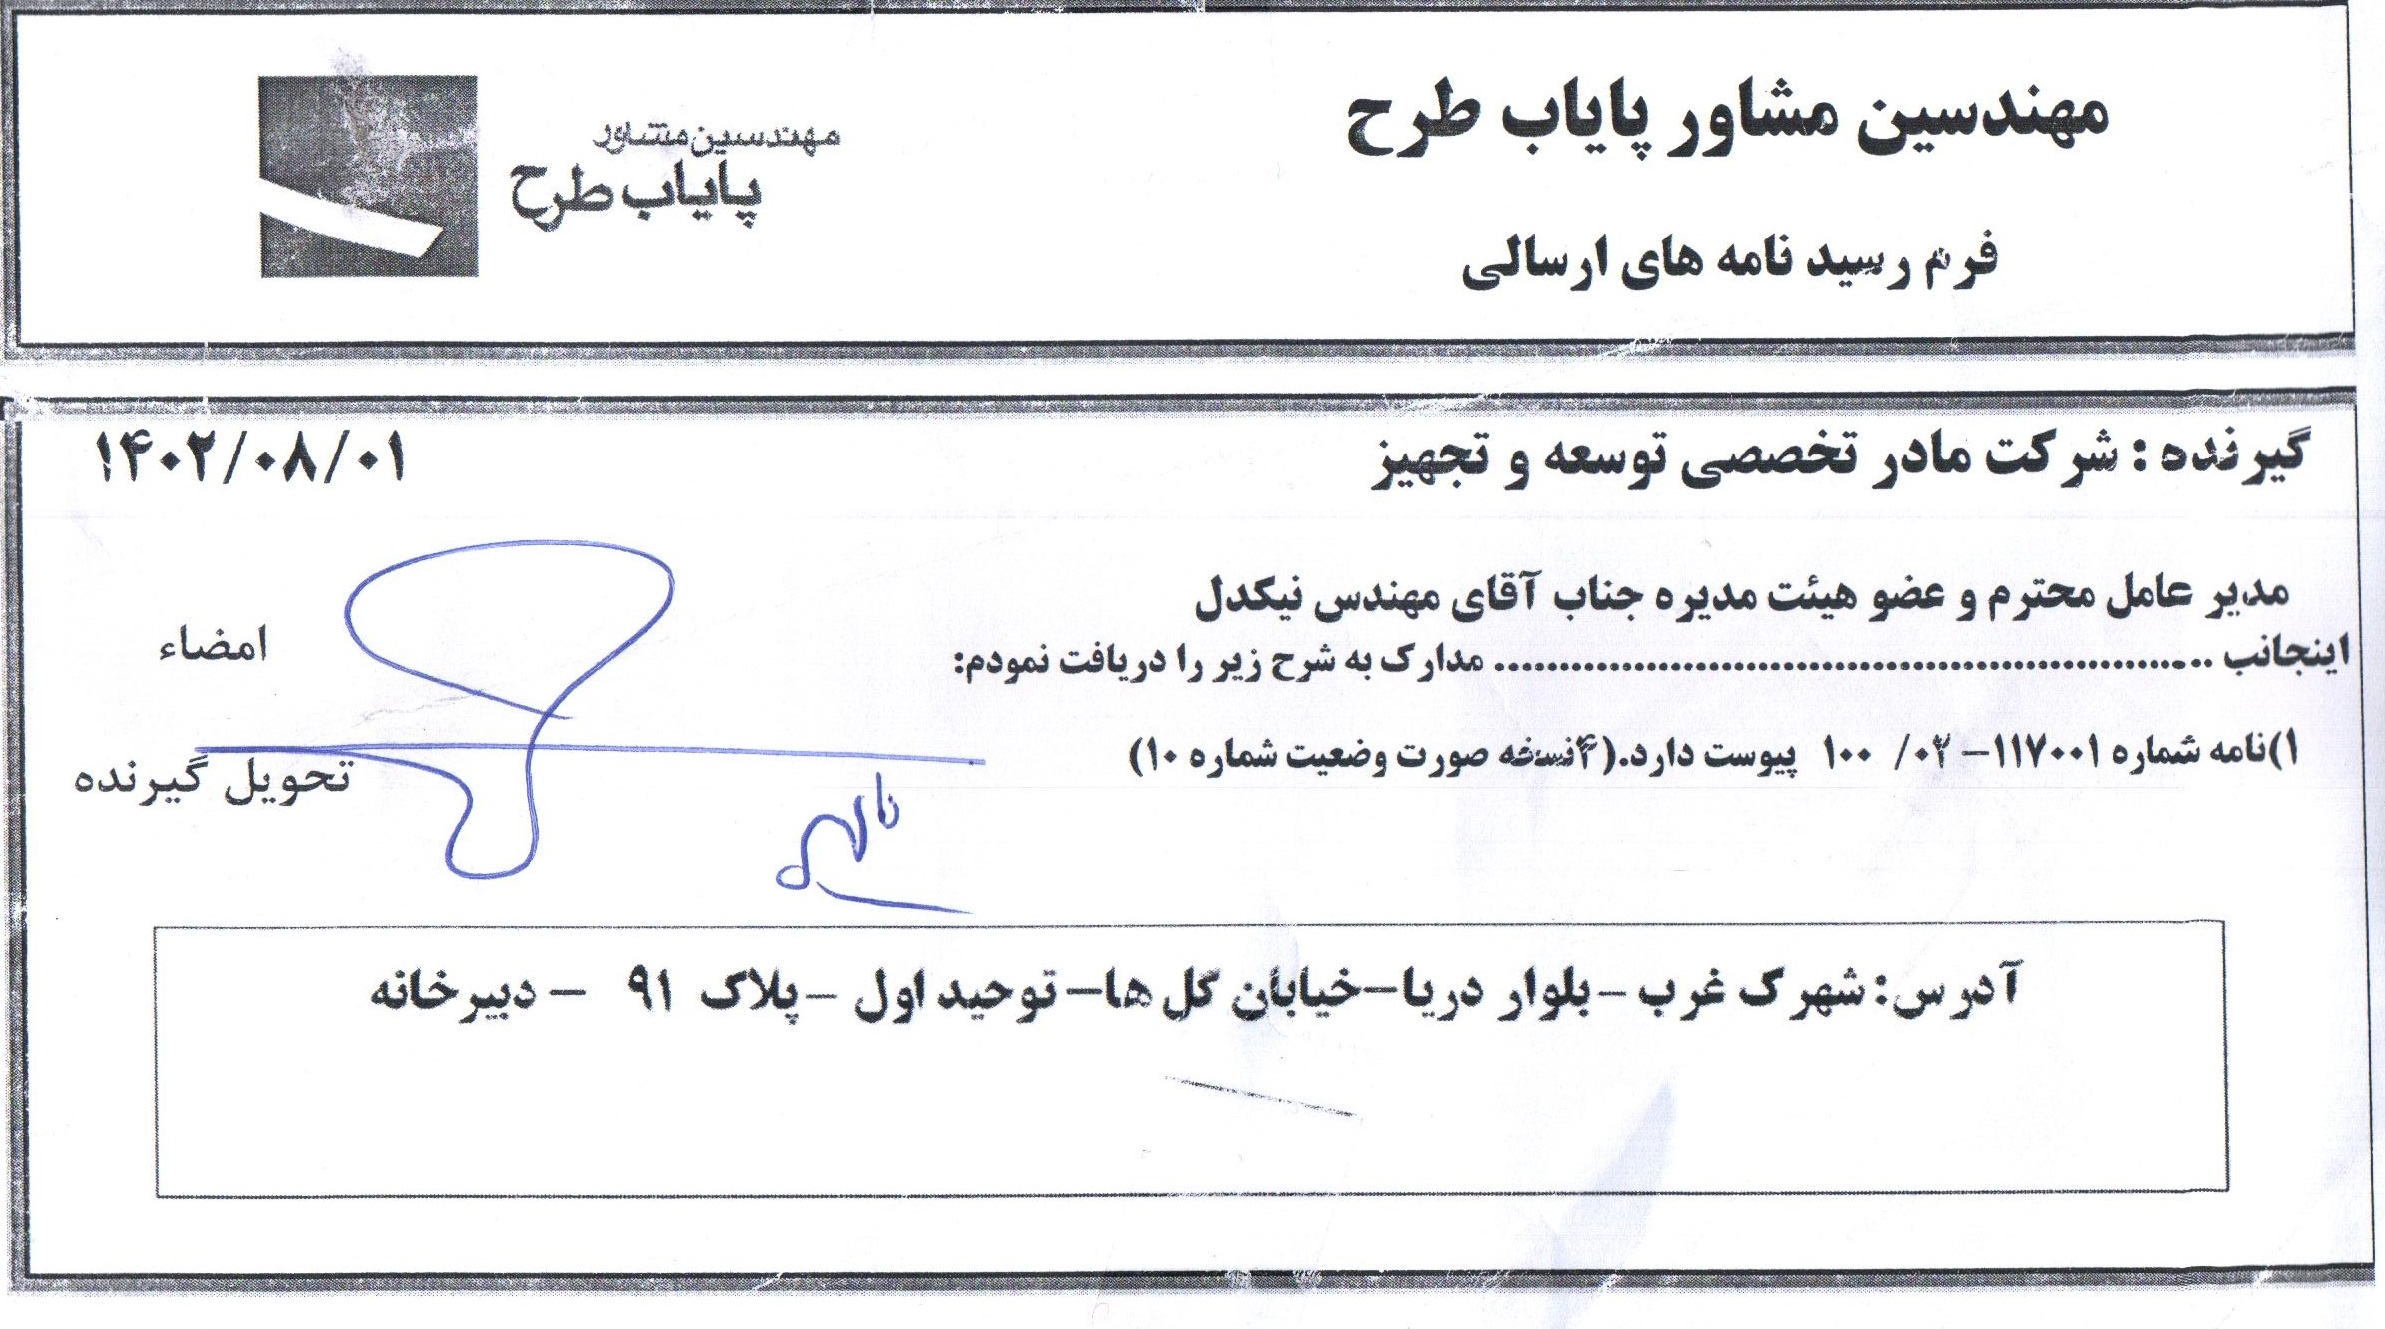 مهندسین مشاور پایاب طرح
مهندسین مشاور
پایاب طرح
فرم رسید نامه های ارسالی
گیرنده : شرکت مادر تخصصی توسعه و تجهیز
۱۴۰۲/۰۸/۰۱
مدیر عامل محترم و عضو هیئت مدیره جناب آقای مهندس نیکدل
امضاء
اینجانب ........................................................ مدارک به شرح زیر را دریافت نمودم:
۱)نامه شماره ۱۱۷۰۰۱- ۰۲/ ۱۰۰ پیوست دارد.(۴نسخه صورت وضعیت شماره ۱۰)
تحویل گیرنده
آدرس: شهرک غرب -بلوار دریا-خیابان گل ها- توحید اول -پلاک ۹۱ - دبیرخانه